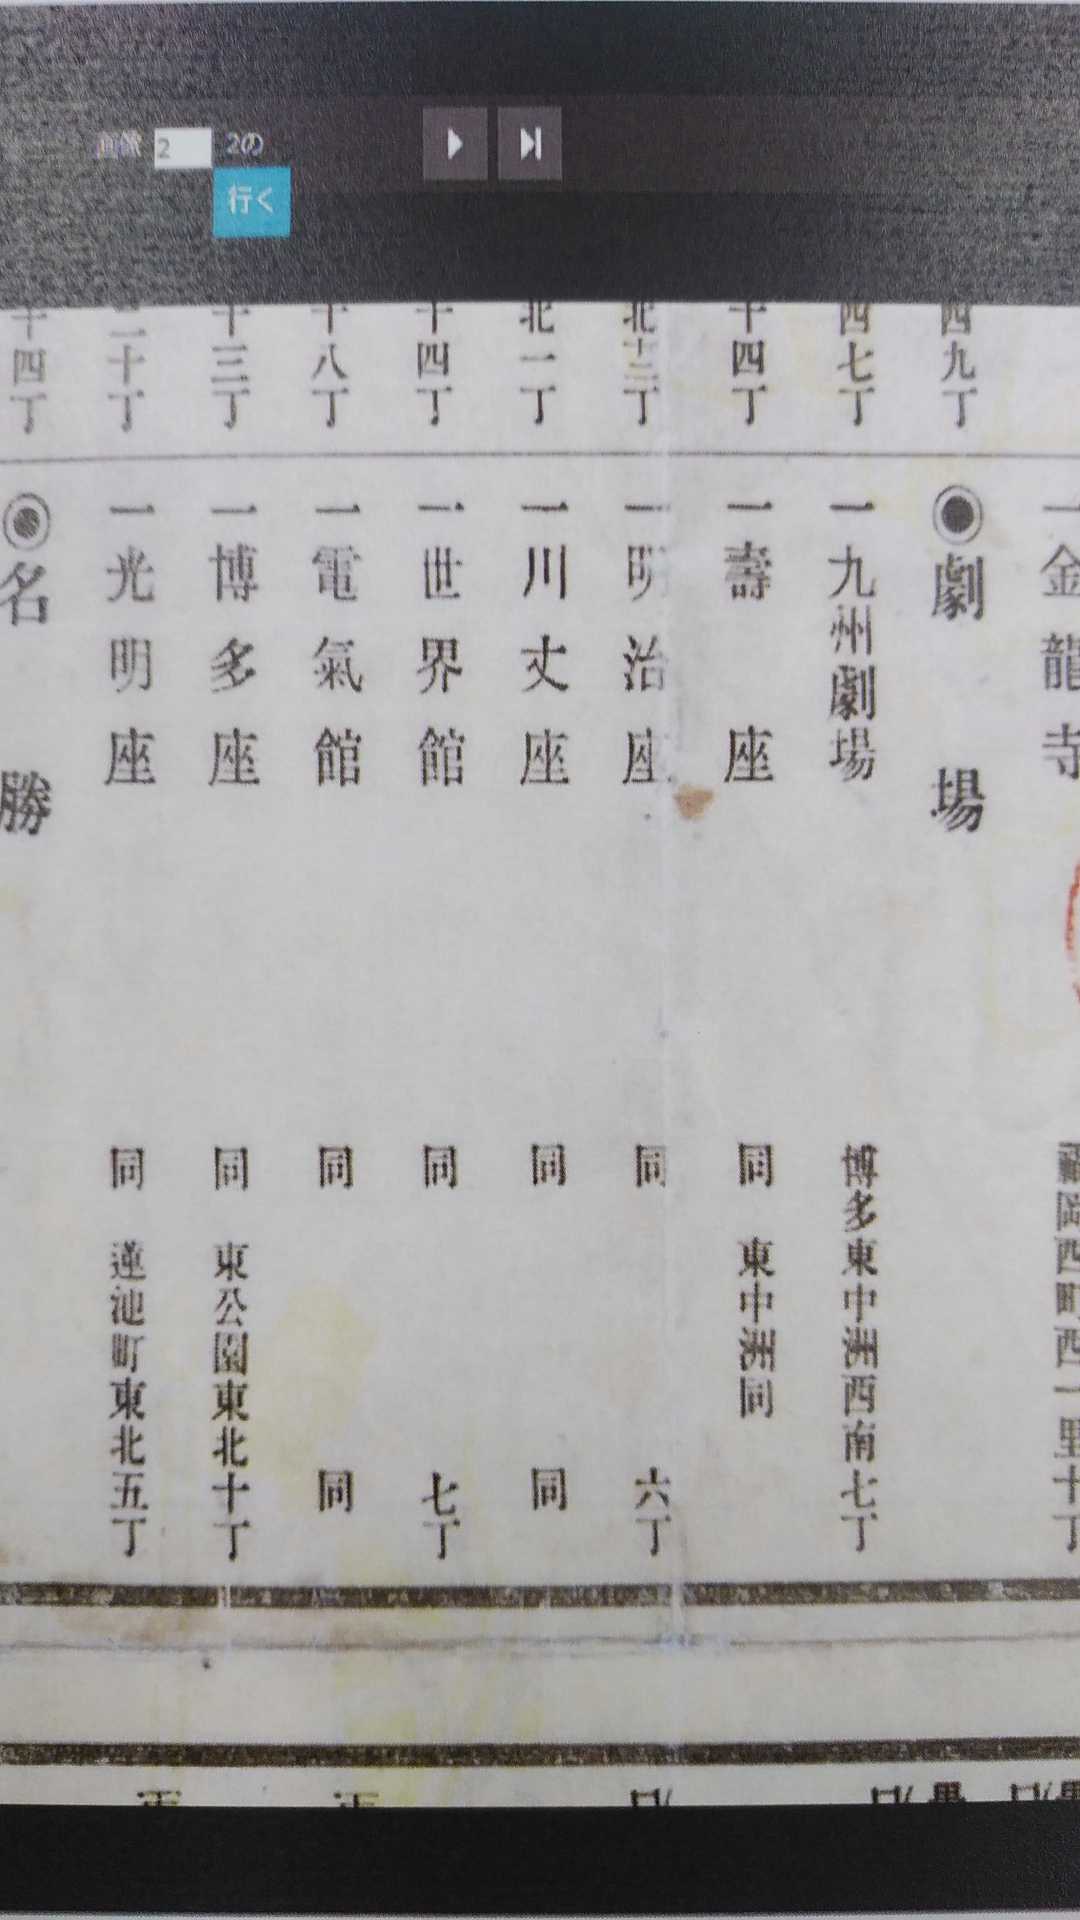 画像 2 2の
行く
四九丁
四七丁
十四丁
北十三丁
北一丁
十四丁
十八丁
十三丁
二十丁
十四丁
一金龍寺 福岡西町西一里十丁
◉劇場
一九州劇場 博多東中洲西南七丁
一壽座 同 東中洲同
一明治座 同 六丁
一川丈座 同 同
一世界館 同 七丁
一電氣館 同 同
一博多座 同 東公園東北十丁
一光明座 同 蓮池町東北五丁
◉名勝